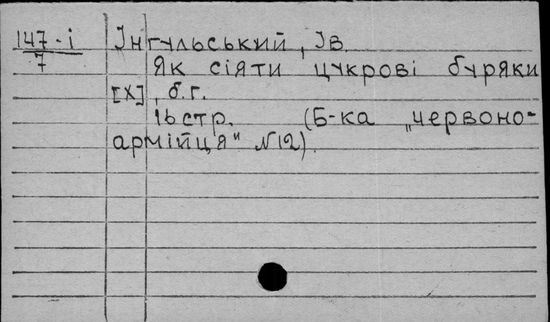 147-і
7
Інгульський, Ів
Як сіяти цукрові буряки
[Х], б.г.
16 стр. (Б-ка „червоно-
армійця" №12).